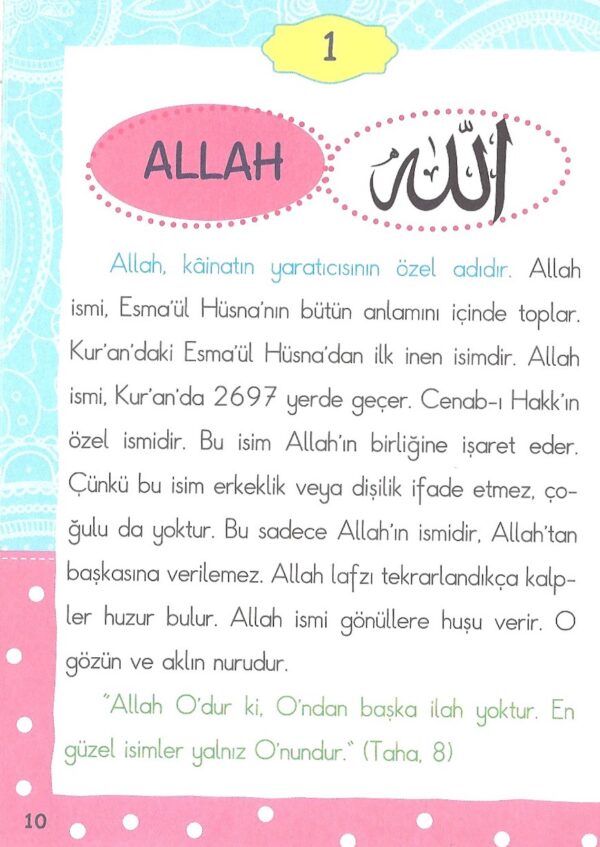 1
ALLAH
الله
Allah, kâinatın yaratıcısının özel adıdır. Allah
ismi, Esma'ül Hüsna'nın bütün anlamını içinde toplar.
Kur'an'daki Esma'ül Hüsna'dan ilk inen isimdir. Allah
ismi, Kur'an'da 2697 yerde geçer. Cenab-ı Hakk'ın
özel ismidir. Bu isim Allah'ın birliğine işaret eder.
Çünkü bu isim erkeklik veya dişilik ifade etmez, ço-
ğulu da yoktur. Bu sadece Allah'ın ismidir, Allah'tan
başkasına verilemez. Allah lafzı tekrarlandıkça kalp-
ler huzur bulur. Allah ismi gönüllere huşu verir. O
gözün ve aklın nurudur.
"Allah O'dur ki, O'ndan başka ilah yoktur. En
güzel isimler yalnız O'nundur." (Taha, 8)
10